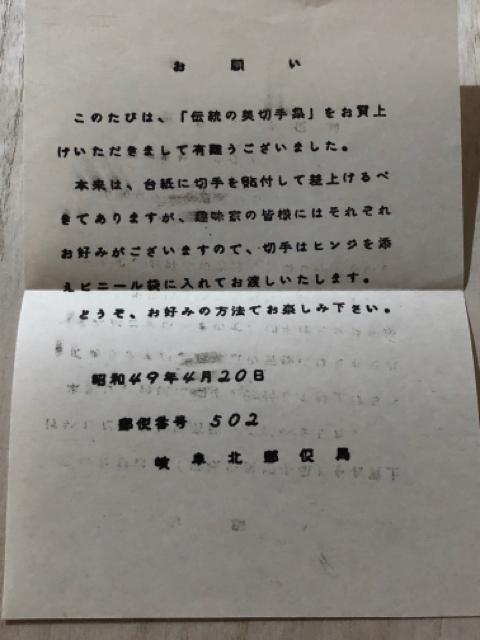 お願い
このたびは、「伝統の美切手帛」をお買上
げいただきまして有難うございました。
本来は、台紙に切手を貼付して差上げるべ
きでありますが、趣味家の皆様にはそれぞれ
お好みがございますので、切手はヒンジを添
えビニール袋に入れてお渡しいたします。
どうぞ、お好みの方法でお楽しみ下さい。
昭和49年4月20日
郵便番号 502
岐阜北郵便局